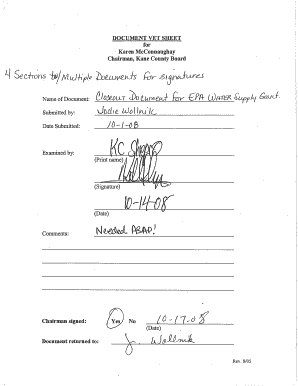 DOCUMENT VET SHEET
for
Karen McConnaughay
Chairman, Kane County Board
4 Sections w/Multiple Documents for signatures
Name of Document: Closeout Document for EPA Water Supply Grant.
Submitted by: Jodie Wollnik
Date Submitted: 10-1-08
Examined by: KC
(Print name)
(Signature)
10-14-08
(Date)
Comments: Needed ASAP!
Chairman signed: Yes No 10-17-08
(Date)
Document returned to: J. Wollnik
Rev. 8/05